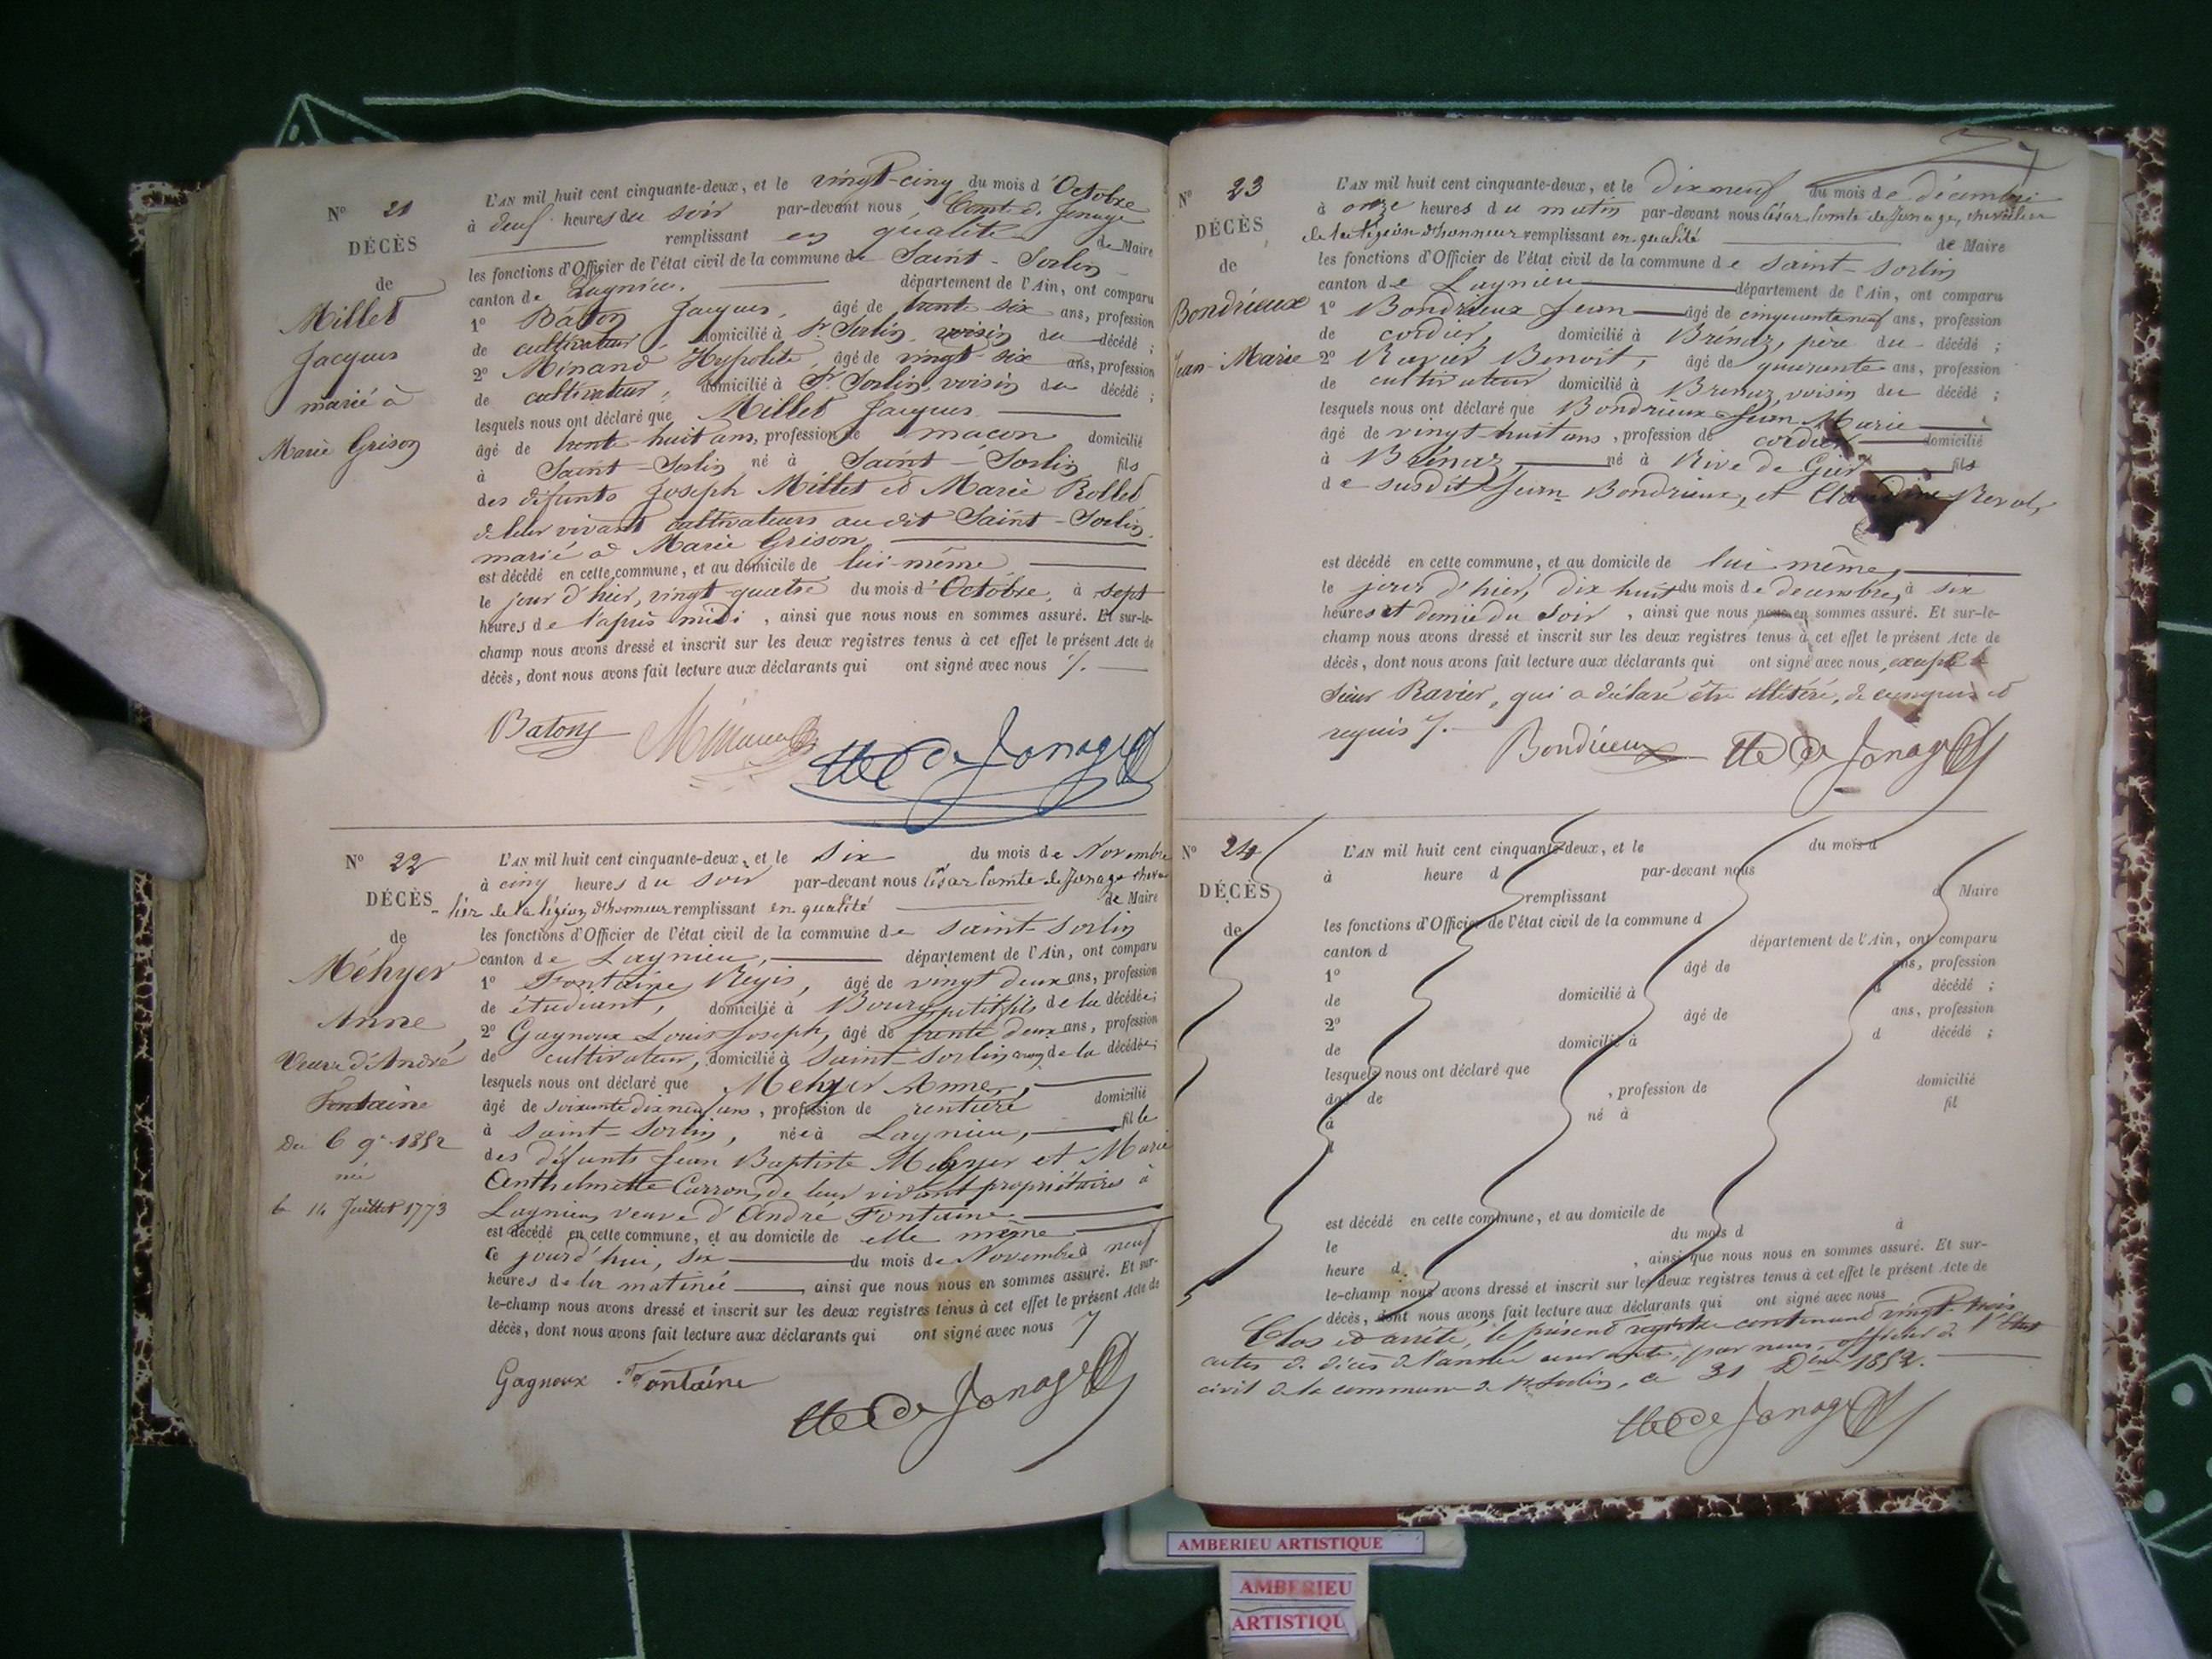 N° 21
DÉCÈS
de
Millet
Jacques
marié à
Marie Grison
L'AN mil huit cent cinquante-deux, et le vingt-cinq du mois d'Octobre
à deux heures du soir par-devant nous, Comte de Jonage
remplissant en qualité de Maire
les fonctions d'Officier de l'état civil de la commune de Saint-Sorlin
canton de Lagnieu. département de l'Ain, ont comparu
1° Baton Jacques, âgé de trente six ans, profession
de cultivateur, domicilié à St Sorlin, voisin du décédé ;
2° Minand Hypolite, âgé de vingt-six ans, profession
de cultivateur, domicilié à St Sorlin, voisin du décédé ;
lesquels nous ont déclaré que Millet Jacques
âgé de trente-huit ans, profession de maçon domicilié
à Saint-Sorlin né à Saint-Sorlin fils
des défunts Joseph Millet et Marie Rollet
de leur vivant cultivateurs audit Saint-Sorlin.
marié à Marie Grison
est décédé en cette commune, et au domicile de lui-même
le jour d'hier, vingt-quatre du mois d'Octobre, à sept
heures de l'après midi, ainsi que nous nous en sommes assuré. Et sur-le-
champ nous avons dressé et inscrit sur les deux registres tenus à cet effet le présent Acte de
décès, dont nous avons fait lecture aux déclarants qui ont signé avec nous
Baton Minand Cte de Jonage
N° 22
DÉCÈS
de
Méhyer
Anne
Veuve d'André
Fontaine
Du 6 9e 1852
né
le 14 Juillet 1773
L'AN mil huit cent cinquante-deux, et le six du mois de Novembre
à cinq heures du soir par-devant nous César Comte de Jonage cheva
lier de la légion d'honneur remplissant en qualité de Maire
les fonctions d'Officier de l'état civil de la commune de Saint-Sorlin
canton de Lagnieu, département de l'Ain, ont comparu
1° Fontaine Régis, âgé de vingt deux ans, profession
de étudiant, domicilié à Bourg, petit fils de la décédée ;
2° Gagneux Louis Joseph, âgé de trente deux ans, profession
de cultivateur, domicilié à Saint-Sorlin de la décédée ;
lesquels nous ont déclaré que Mehyer Anne,
âgé de soixante dix neuf ans, profession de rentière domicilié
à Saint-Sorlin, née à Lagnieu, fille
des défunts Jean Baptiste Mehyer et Marie
Anthelmette Carron, de leur vivant propriétaires à
Lagnieu, veuve d'André Fontaine
est décédé en cette commune, et au domicile de elle même
Ce jourd'hui, six du mois de Novembre à neuf
heures de la matinée, ainsi que nous nous en sommes assuré. Et sur-
le-champ nous avons dressé et inscrit sur les deux registres tenus à cet effet le présent Acte de
décès, dont nous avons fait lecture aux déclarants qui ont signé avec nous
Gagneux Fontaine Cte de Jonage
N° 23
DÉCÈS
de
Bondrieux
Jean-Marie
L'AN mil huit cent cinquante-deux, et le dix neuf du mois de décembre
à onze heures du matin par-devant nous César Comte de Jonage, chevalier
de la légion d'honneur remplissant en qualité de Maire
les fonctions d'Officier de l'état civil de la commune de Saint-Sorlin
canton de Lagnieu département de l'Ain, ont comparu
1° Bondrieux Jean âgé de cinquante neuf ans, profession
de cordier, domicilié à Brénaz, père du décédé ;
2° Ravier Benoit, âgé de quarante ans, profession
de cultivateur domicilié à Brenaz, voisin du décédé ;
lesquels nous ont déclaré que Bondrieux Jean Marie
âgé de vingt-huit ans, profession de cordier domicilié
à Brénaz, né à Rive de Gier fils
de susdit Jean Bondrieux, et Claudine Revol,
est décédé en cette commune, et au domicile de lui même,
le jour d'hier, dix huit du mois de décembre, à six
heures et demie du soir, ainsi que nous nous en sommes assuré. Et sur-le-
champ nous avons dressé et inscrit sur les deux registres tenus à cet effet le présent Acte de
décès, dont nous avons fait lecture aux déclarants qui ont signé avec nous, excepté le
sieur Ravier, qui a déclaré être illitéré, de ce enquis et
requis
Bondrieux Cte de Jonage
N° 24
DÉCÈS
de
L'AN mil huit cent cinquante-deux, et le du mois d
à heure d par-devant nous
remplissant d Maire
les fonctions d'Officier de l'état civil de la commune d
canton d département de l'Ain, ont comparu
1° âgé de ans, profession
de domicilié à d décédé ;
2° âgé de ans, profession
de domicilié à d décédé ;
lesquels nous ont déclaré que
âgé de , profession de domicilié
à né à fil
d
est décédé en cette commune, et au domicile de
le du mois d à
heure d , ainsi que nous nous en sommes assuré. Et sur-
le-champ nous avons dressé et inscrit sur les deux registres tenus à cet effet le présent Acte de
décès, dont nous avons fait lecture aux déclarants qui ont signé avec nous
Clos et arrêté, le présent registre contenant vingt-trois
actes de décès de l'année courante, par nous, officier de l'état
civil de la commune de St Sorlin, ce 31 Dbre 1852.
Cte de Jonage
AMBERIEU ARTISTIQUE
AMBERIEU
ARTISTIQU